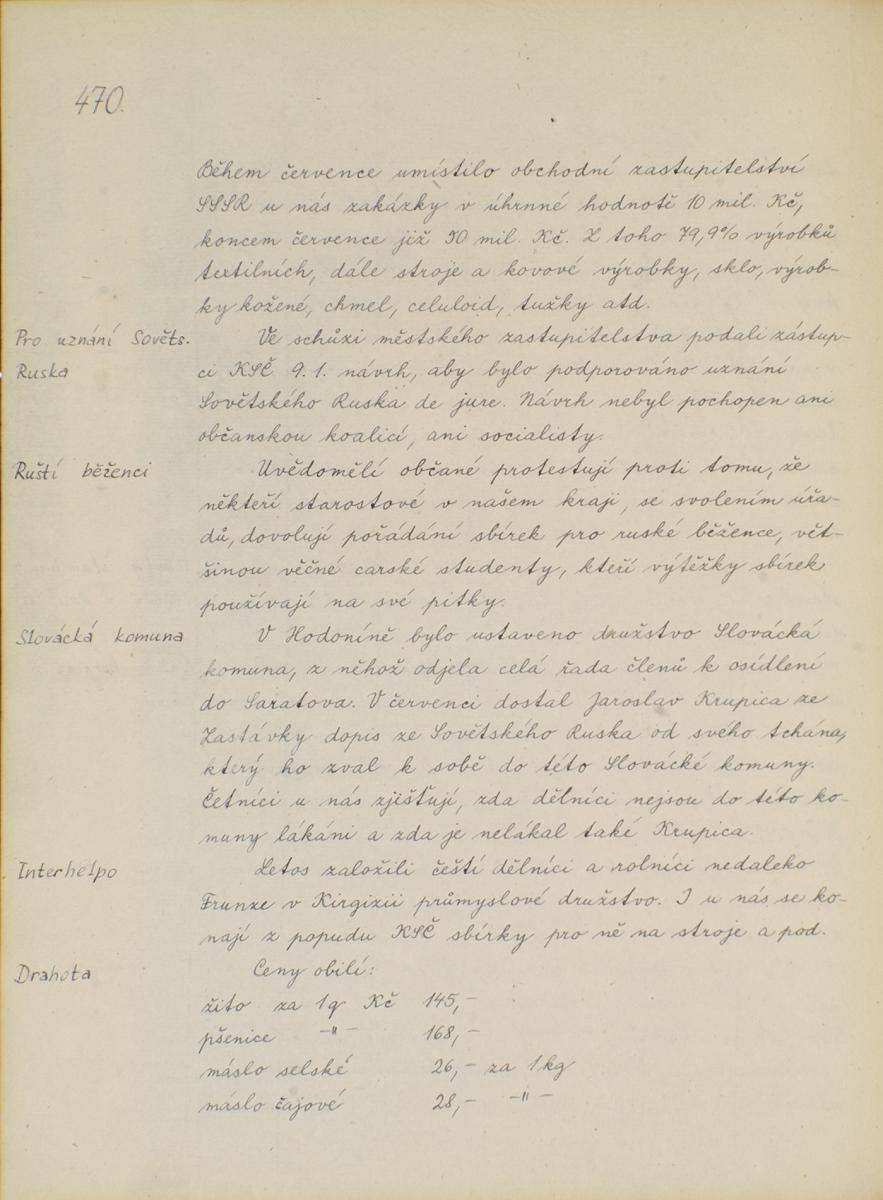 470.
Během července umístilo obchodní zastupitelství
SSSR u nás zakázky v úhrnné hodnotě 10 mil. Kč,
koncem července již 50 mil. Kč. Z toho 79,9% výrobků
textilních, dále stroje a kovové výrobky, sklo, výrob-
ky kožené, chmel, celuloid, tužky atd.
Pro uznání Sověts. Ve schůzi městského zastupitelstva podali zástup-
Ruska ci KSČ 9. 1. návrh, aby bylo podporováno uznání
Sovětského Ruska de jure. Návrh nebyl pochopen ani
občanskou koalicí, ani socialisty.
Ruští běženci Uvědomělí občané protestují proti tomu, že
někteří starostové v našem kraji, se svolením úřa-
dů, dovolují pořádání sbírek pro ruské běžence, vět-
šinou věčné carské studenty, kteří výtěžky sbírek
používají na své pitky.
Slovácká komuna V Hodoníně bylo ustaveno družstvo Slovácká
komuna, z něhož odjela celá řada členů k osídlení
do Saratova. V červenci dostal Jaroslav Krupica ze
Zastávky dopis ze Sovětského Ruska od svého tchána,
který ho zval k sobě do této Slovácké komuny.
Četníci u nás zjišťují, zda dělníci nejsou do této ko-
muny lákáni a zda je nelákal také Krupica.
Interhelpo Letos založili čeští dělníci a rolníci nedaleko
Frunze v Kirgizii průmyslové družstvo. I u nás se ko-
nají z popudu KSČ sbírky pro ně na stroje a pod.
Drahota Ceny obilí:
žito za 1q Kč 145,-
pšenice -"- 168,-
máslo selské 26,- za 1 kg
máslo čajové 28,- -"-